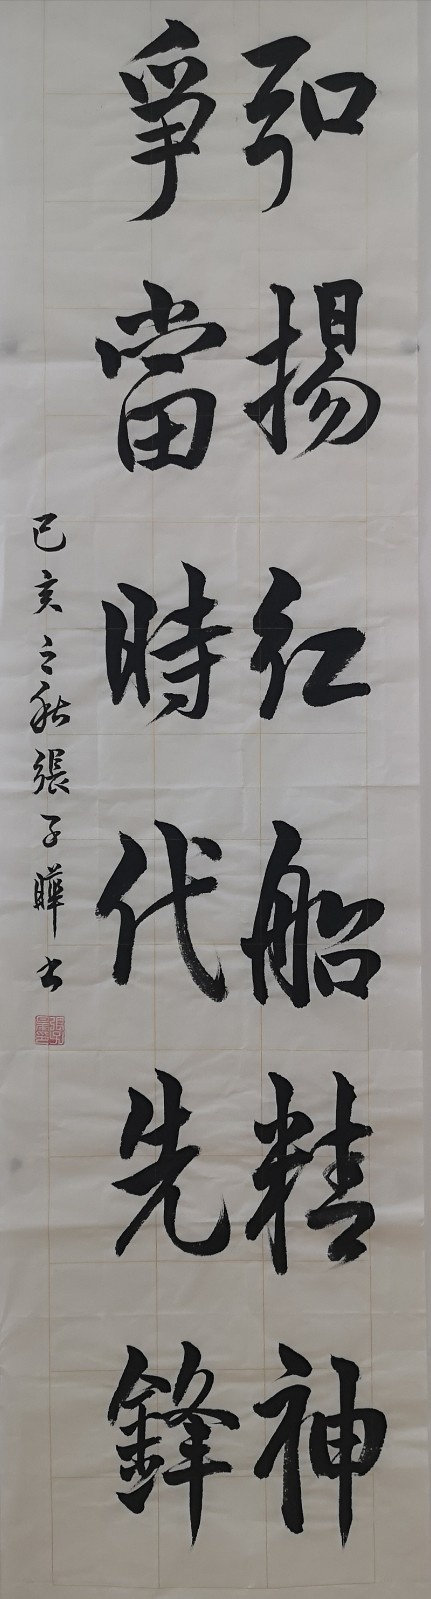 弘揚红船精神
爭當時代先鋒
己亥之秋張子曄书